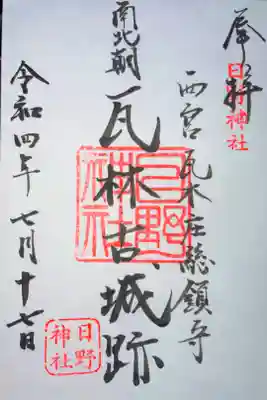 奉拝
日野神社
西宮 瓦木庄総鎮守
南北朝
瓦林古城跡
日野
神社
令和四年 七月十七日
日野
神社